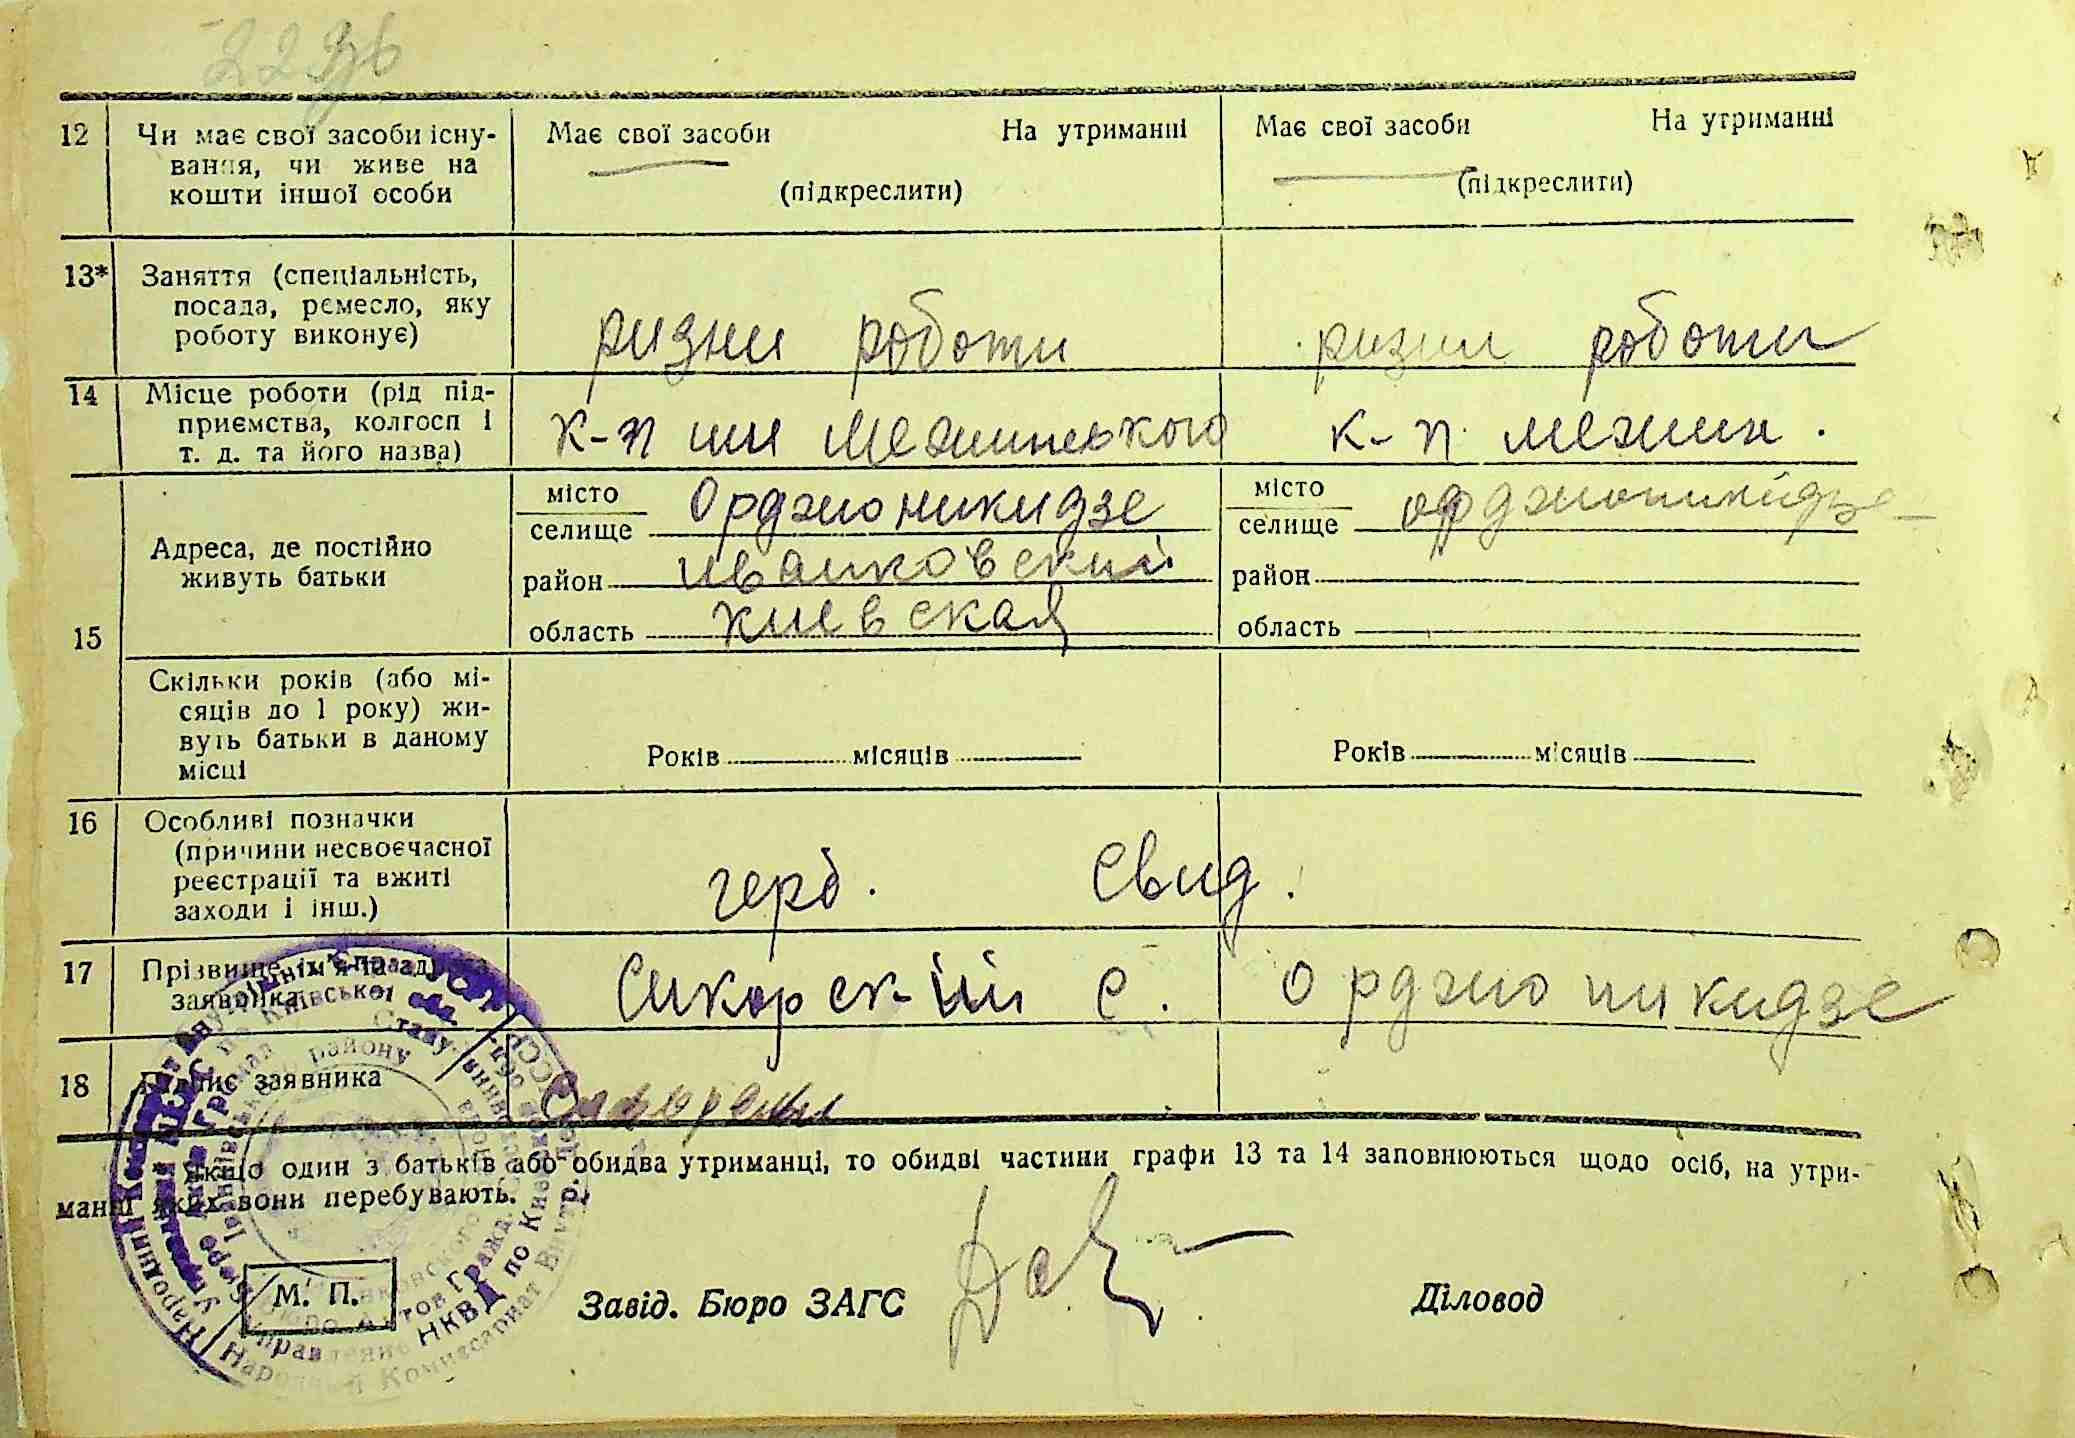 12 Чи має свої засоби існу-
вання, чи живе на
кошти іншої особи
Має свої засоби На утриманні
(підкреслити)
Має свої засоби На утриманні
(підкреслити)
13* Заняття (спеціальність,
посада, ремесло, яку
роботу виконує)
ризни роботи
ризни роботи
14 Місце роботи (рід під-
приємства, колгосп і
т. д. та його назва)
к-п
к-п
15
Адреса, де постійно
живуть батьки
місто
селище Орджоникидзе
район иванковский
область киевская
місто
селище орджоникидзе
район
область
Скільки років (або мі-
сяців до 1 року) жи-
вуть батьки в даному
місці
Років місяців
Років місяців
16 Особливі позначки
(причини несвоєчасної
реєстрації та вжиті
заходи і інш.)
герб. свид.
17 Прізвище, ім'я та
заявника
Сикорск-ий С. Орджоникидзе
18 Підпис заявника
* Якщо один з батьків або обидва утриманці, то обидві частини графи 13 та 14 заповнюються щодо осіб, на утри-
манні яких вони перебувають.
М. П.
Завід. Бюро ЗАГС
Діловод